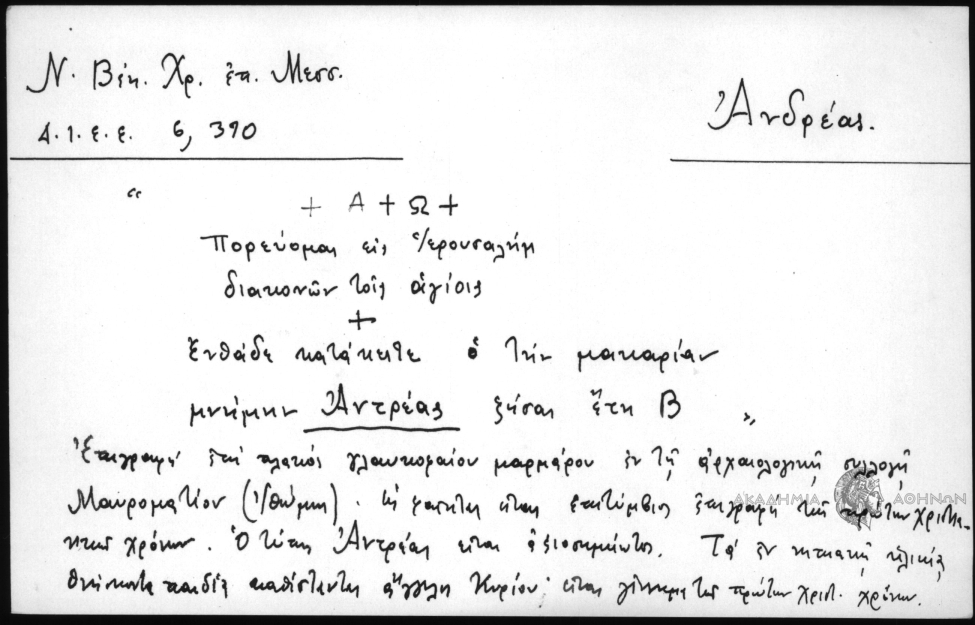 Ν. Βέη. Χρ. ἐπ. Μεσσ.
Δ.Ι.Ε.Ε. 6, 390
Ἀνδρέας.
“
+ Α + Ω +
Πορεύομαι εἰς Ἱερουσαλήμ
διακονῶν τοῖς ἁγίοις
+
Ἐνθάδε κατάκειτε ὁ τὴν μακαρίαν
μνήμην Ἀντρέας ζήσας ἔτη Β „
Ἐπιγραφὴ ἐπὶ πλακὸς γλαυκοφαίου μαρμάρου ἐν τῇ ἀρχαιολογικῇ συλλογῇ
Μαυροματίου (Ἰθώμης) . εἶναι ἐπιτύμβιος ἐπιγραφὴ τῶν πρώτων χριστια-
νικῶν χρόνων. Ὁ τύπος Ἀντρέας εἶναι ἀξιοσημείωτος. Τὰ ἐν νηπιακῇ ἡλικίᾳ
θνήσκοντα παιδία καθίστανται ἄγγελοι Κυρίου· εἶναι τῶν πρώτων χριστ. χρόνων.
ΑΚΑΔΗΜΙΑ ΑΘΗΝΩΝ